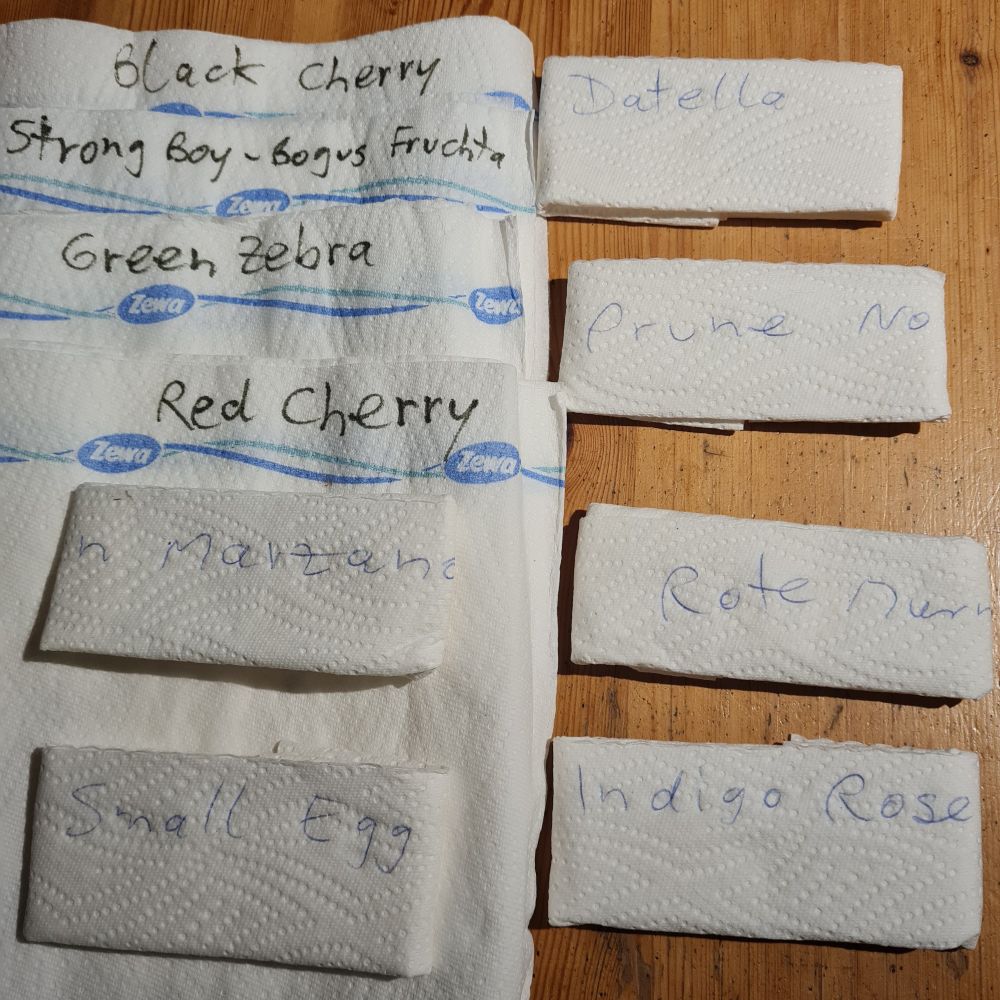 Black Cherry
Strong Boy - Bogus Fruchta
Zewa
Green Zebra
Zewa Zewa
Red Cherry
Zewa Zewa
n Marzano
Small Egg
Datella
Prune No
Rote Murm
Indigo Rose